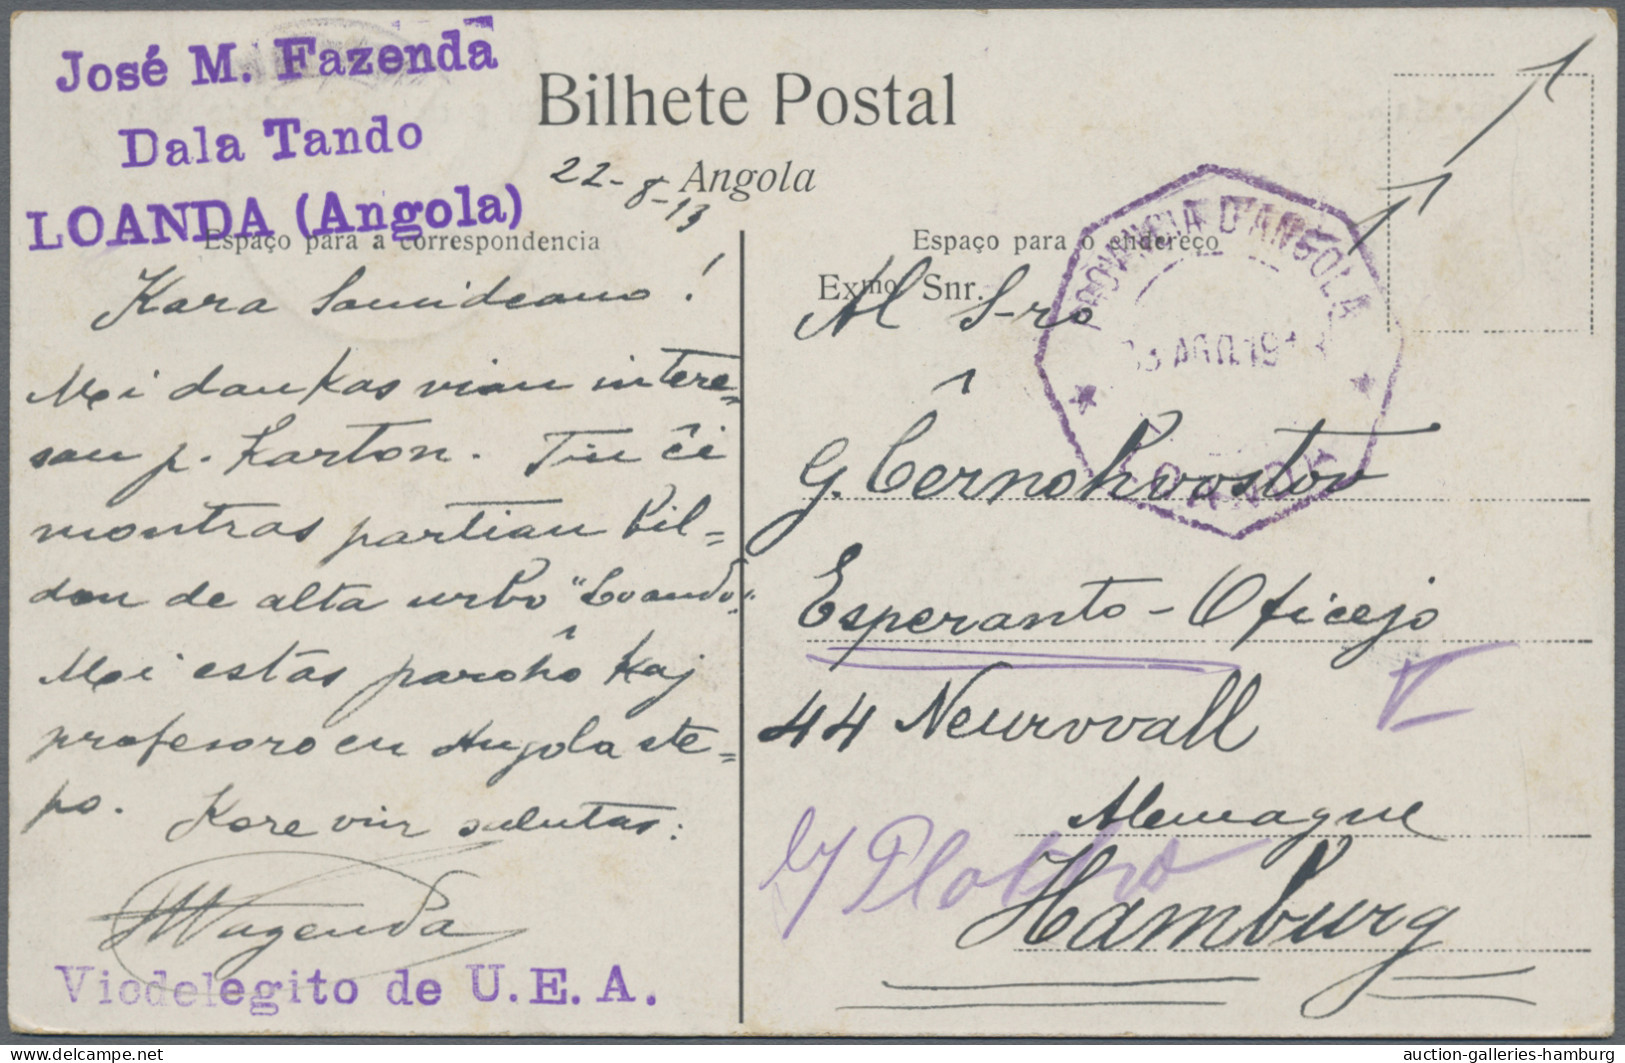 José M. Fazenda
Dala Tando
LOANDA (Angola)
Bilhete Postal
22-8-13
Angola
Espaço para a correspondencia
Kara Samideano!
Mi dankas vian intere=
san p. karton. Tiu ĉi
montras partian bil=
don de alta urbo "Loando".
Mi estas paroĥo kaj
profesoro en Angola ste=
po. Kore vin salutas:
Viodelegito de U.E.A.
Espaço para o endereço
Exmo Snr.
Al S-ro
PROVINCIA D'ANGOLA
AGO.19
LOANDA
G. Ĉernohvostov
Esperanto-Oficejo
44 Neurovvall
Alemagne
Hamburg
auction-galleries-hamburg